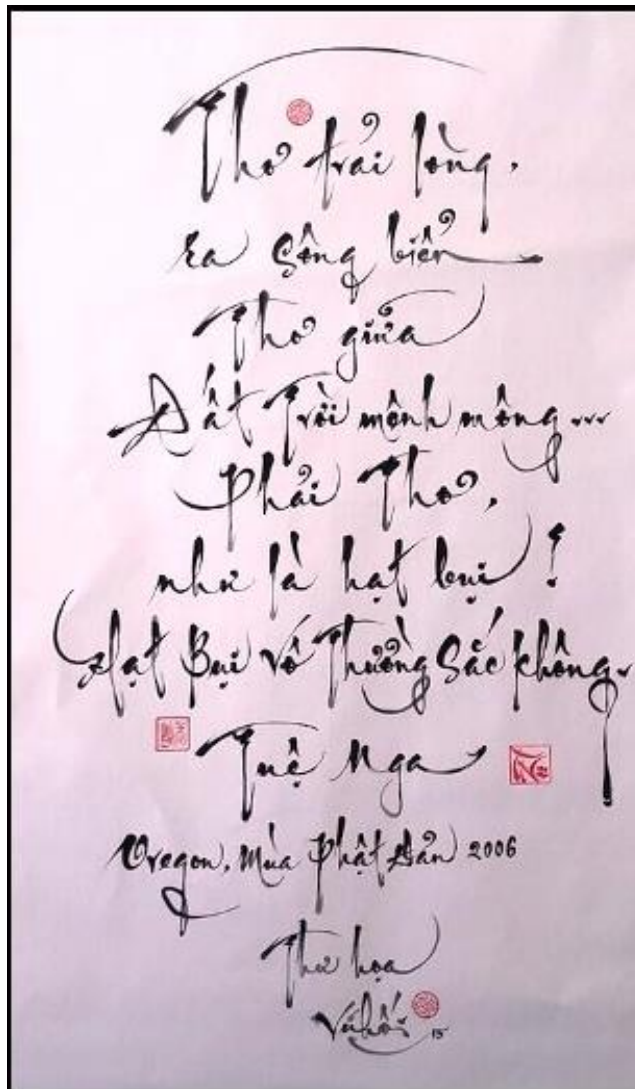 Thơ trải lòng,
ra sông biển
Thơ giữa
Đất Trời mênh mông...
Phải Thơ,
như là hạt bụi!
Hạt Bụi Vô Thường Sắc không.
Tuệ Nga
Oregon, Mùa Phật Đản 2006
Thư họa
Vũ Hối 15